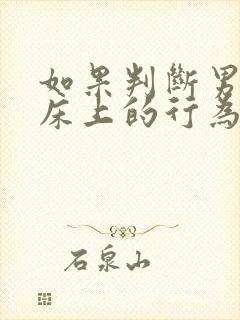 如果判斷男
床上的行為
石泉山